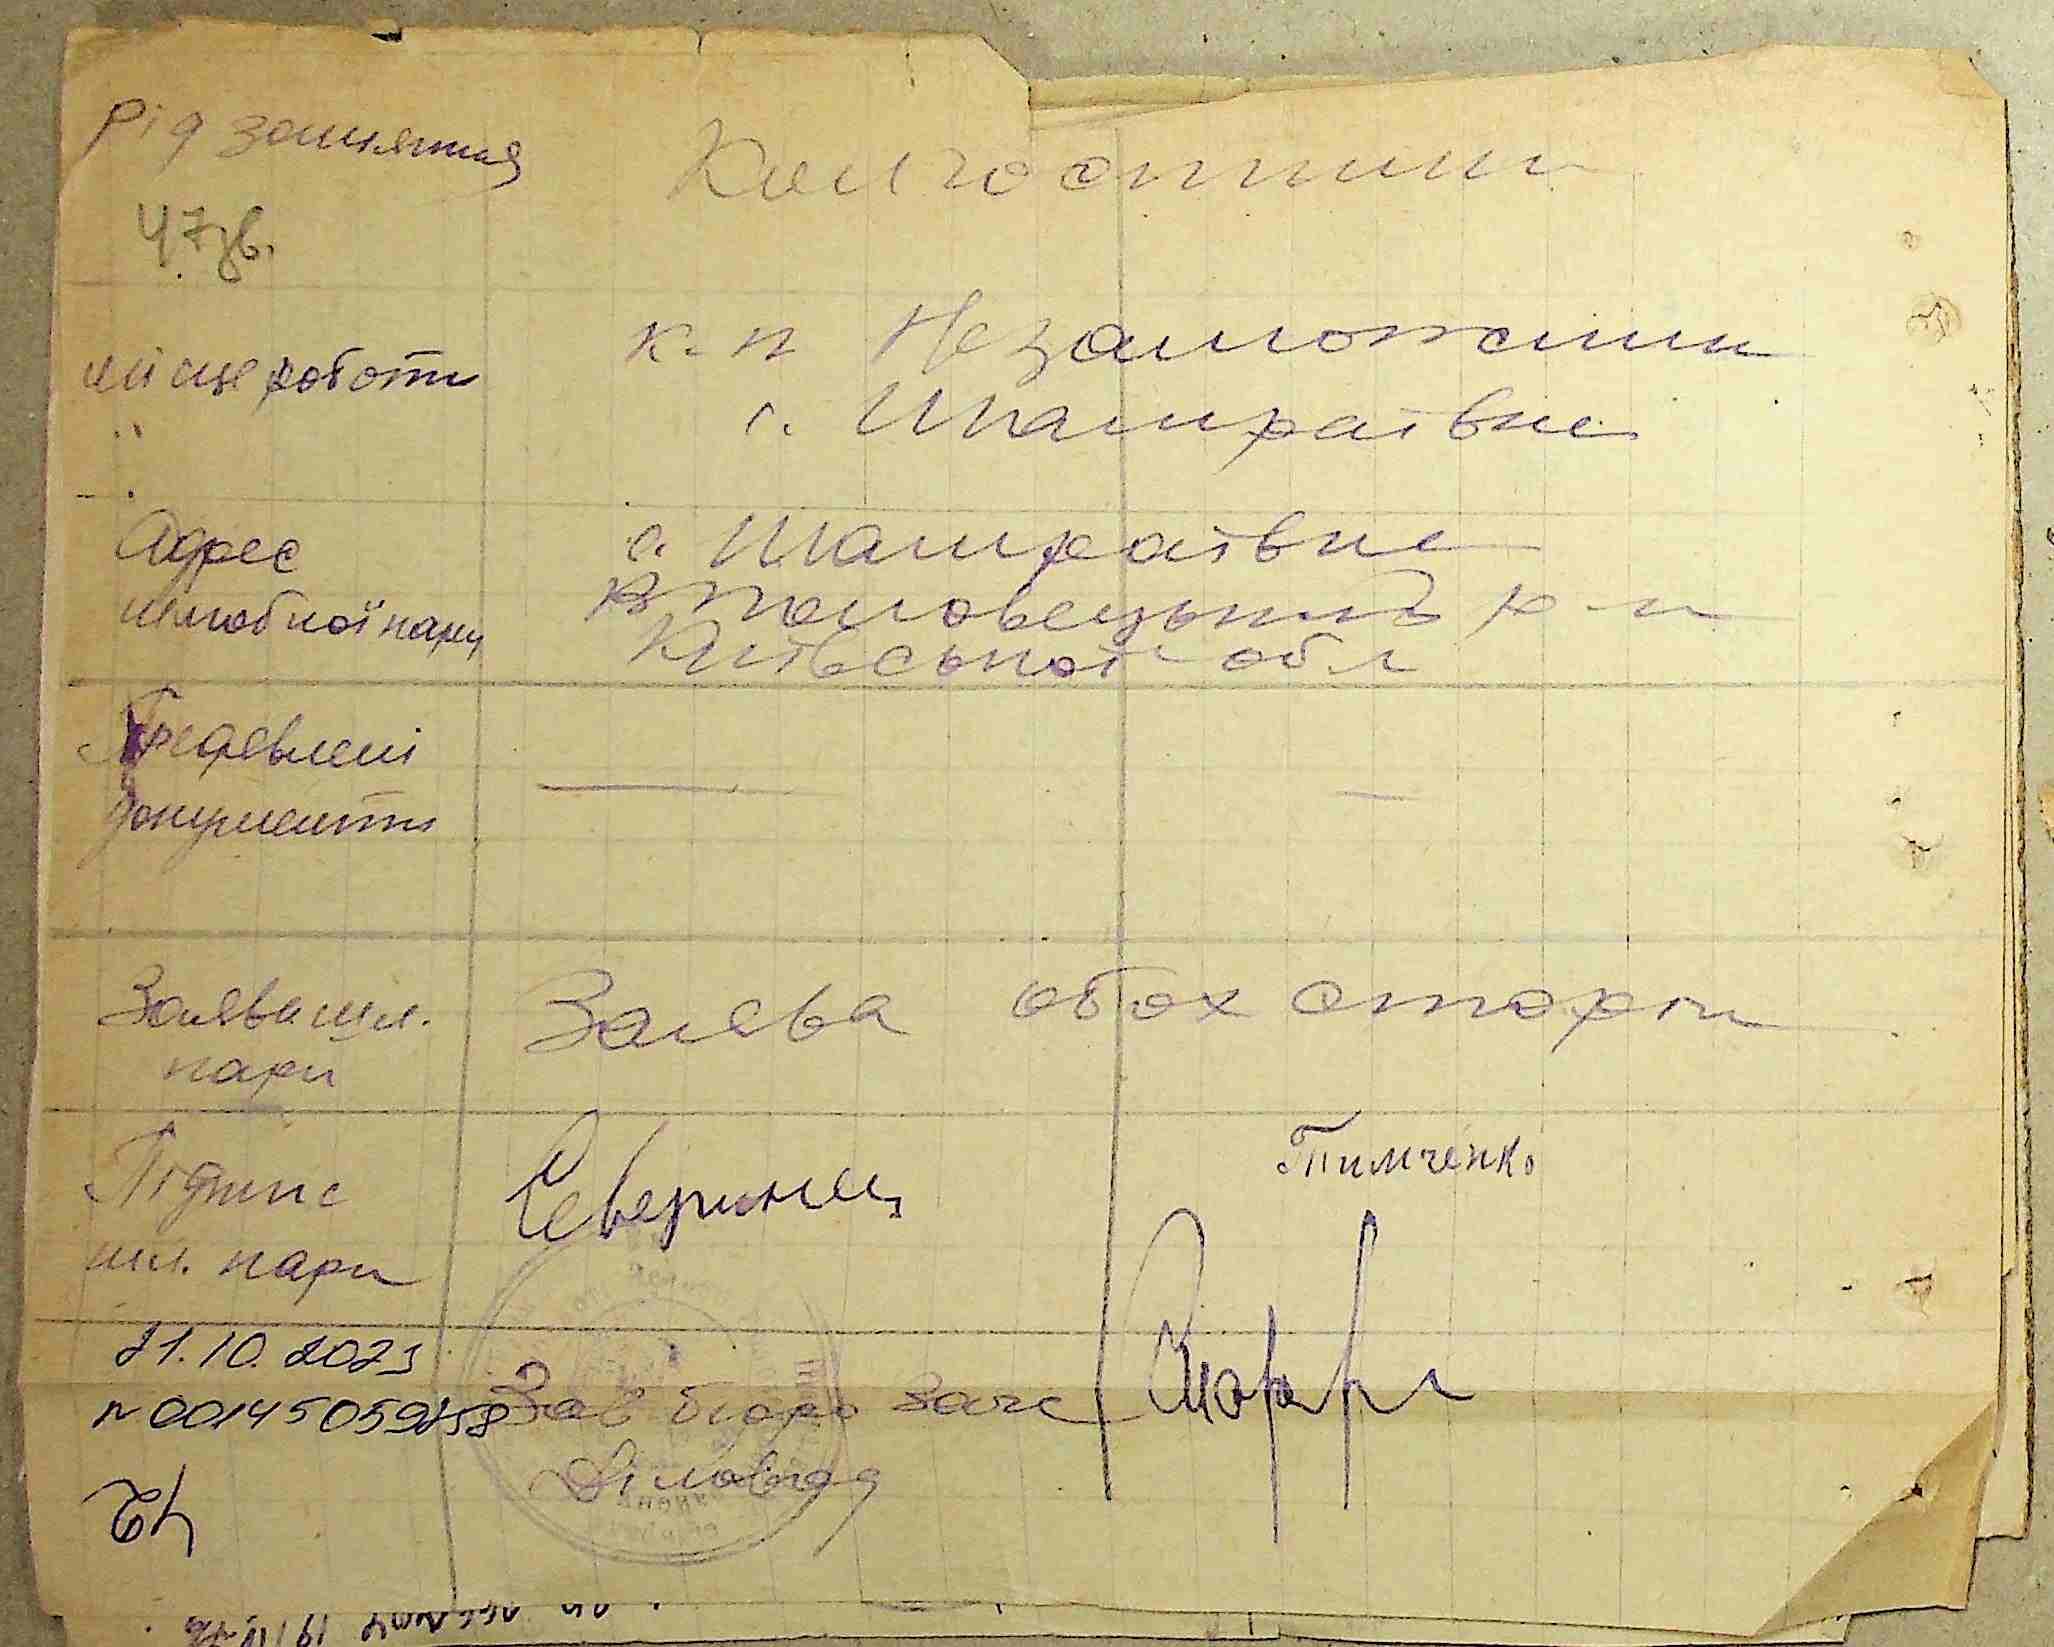 Рід занняття
Колгоспники
47зв.
місце роботи
к-п Незаможник
с. Шамраївка
Адрес
шлюбної пари
с. Шамраївка
Київської обл
р-н
Предявлені
документи
Заява шл.
пари
Заява обох сторін
Підпис
шл. пари
Северинец
Тимченко
21.10.2023
N 00145059258
Зав бюро загс
Діловод